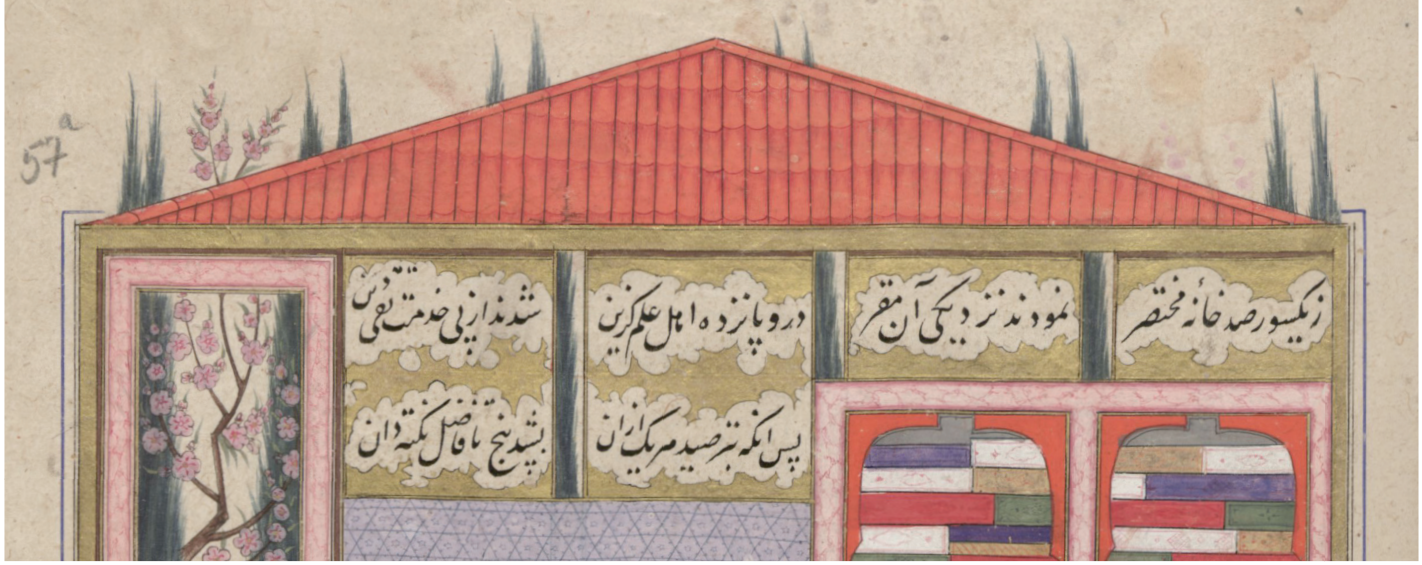 57a
زیکسو رصد خانهٔ مختصر نمودند نزدیکی آن مقر درو پانزده اهل علم گزین شدند از پی خدمت تقی دین
پس انکه بترصید هر یک ازان پنج تا فاضل نکته دان